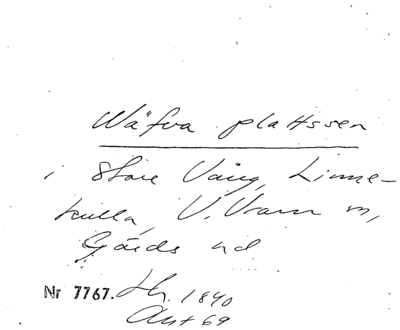 Wäfva plattsen
i Store Vång, Linne-
kulla, V. Vram sn,
Gärds hd
Nr 7767. Lh. 1840
Ant 69